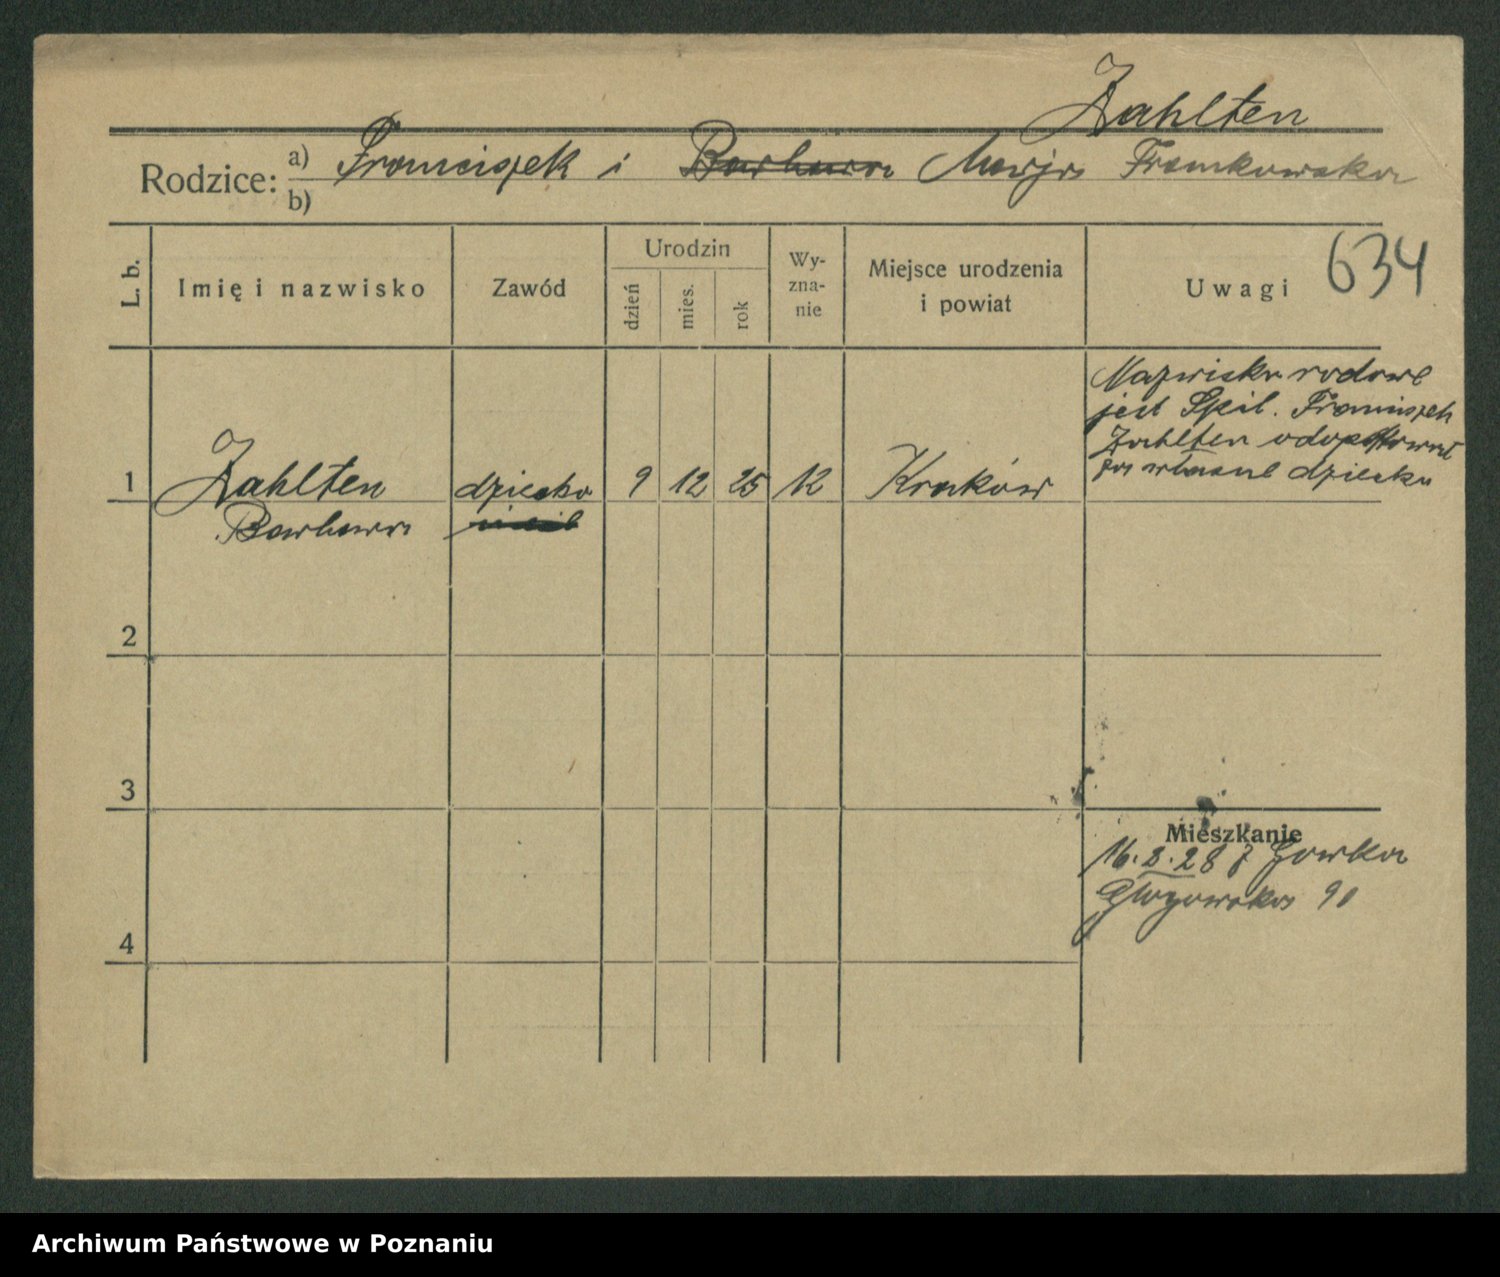 Zahlten
Rodzice: a) Franciszek i Barbara Marja Frankowska
b)
L. b.
Imię i nazwisko
Zawód
Urodzin
dzień
mies.
rok
Wy-
zna-
nie
Miejsce urodzenia
i powiat
Uwagi
634
Nazwisko rodowe
jest Spil. Franciszek
Zahlten adoptował
za własne dziecko
1 Zahlten dziecko 9 12 25 Kraków
Barbara
2
3
4
Mieszkanie
16. 2. 28 z
Głogowska 90
Archiwum Państwowe w Poznaniu